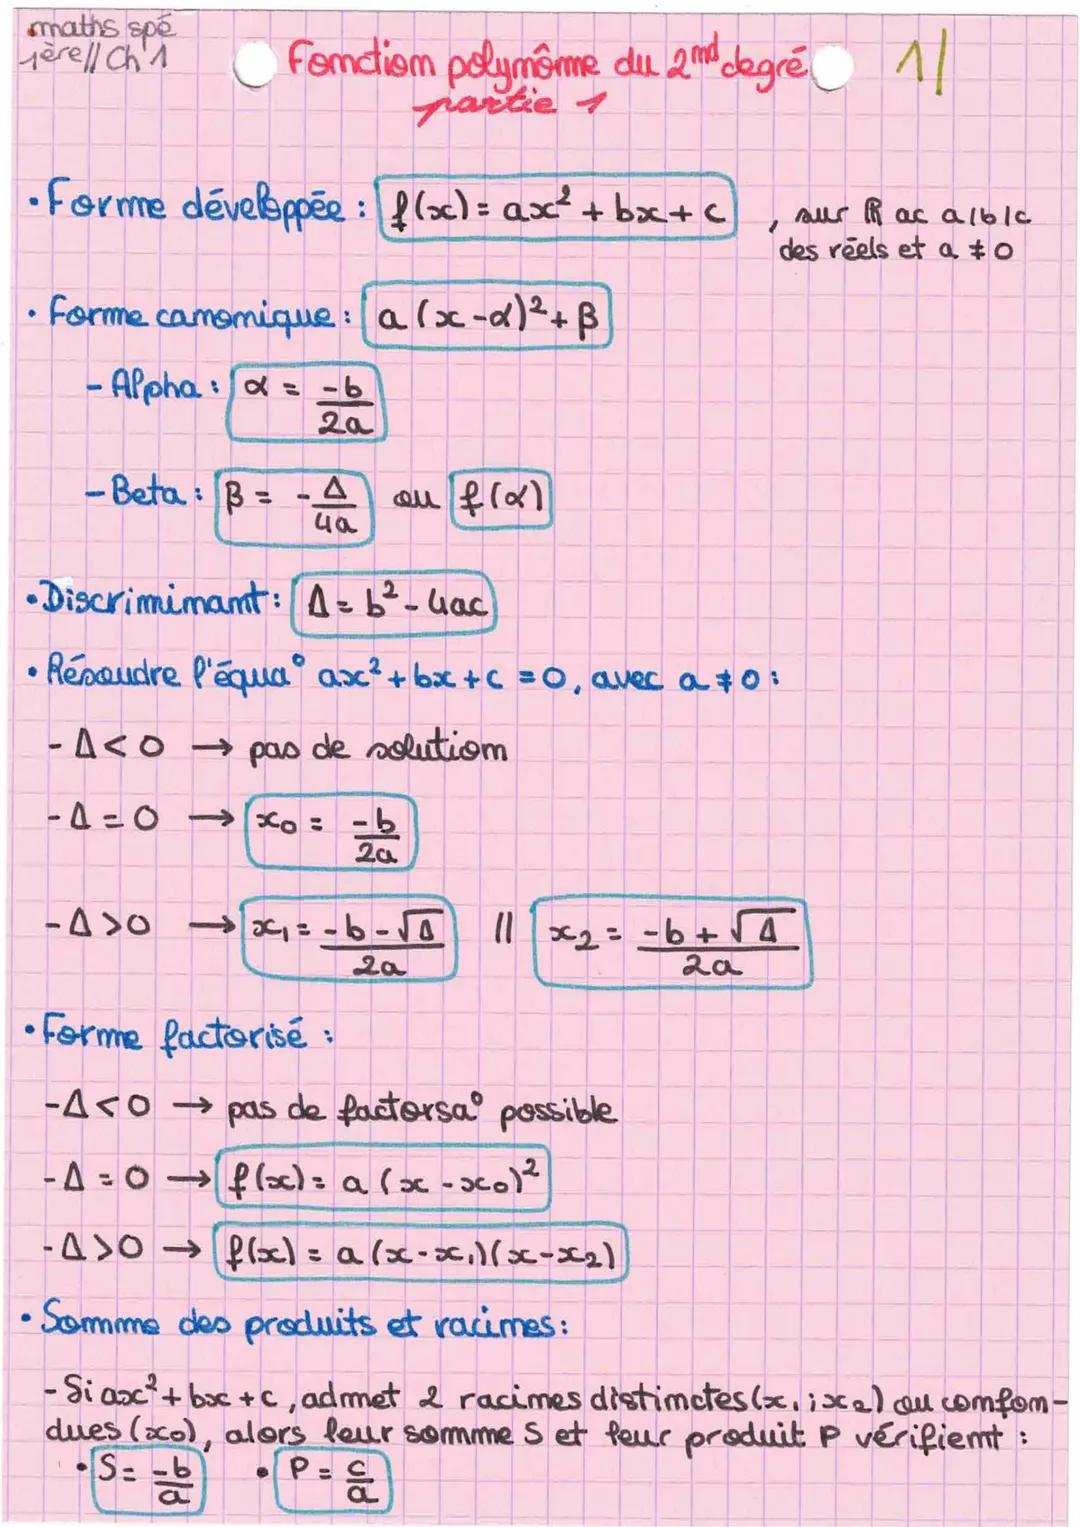 maths spé
1ère// Ch 1
Fonction polynôme du 2nd degré
partie 1
1/
• Forme développée : f(x) = ax² + bx + c , sur ℝ ac a/b/c
des réels et a ≠ 0
• Forme canonique : a (x - α)² + β
- Alpha : α = -b/2a
- Beta : β = - Δ/4a ou f(α)
• Discriminant : Δ = b² - 4ac
• Résoudre l'équa° ax² + bx + c = 0, avec a ≠ 0 :
- Δ < 0 → pas de solution
- Δ = 0 → x₀ = -b/2a
- Δ > 0 → x₁ = -b - √Δ/2a // x₂ = -b + √Δ/2a
• Forme factorisé :
- Δ < 0 → pas de factorsa° possible
- Δ = 0 → f(x) = a (x - x₀)²
- Δ > 0 → f(x) = a (x - x₁)(x - x₂)
• Somme des produits et racines :
- Si ax² + bx + c, admet 2 racines distinctes (x₁ ; x₂) ou confon-
dues (x₀), alors leur somme S et leur produit P vérifient :
• S = -b/a • P = c/a